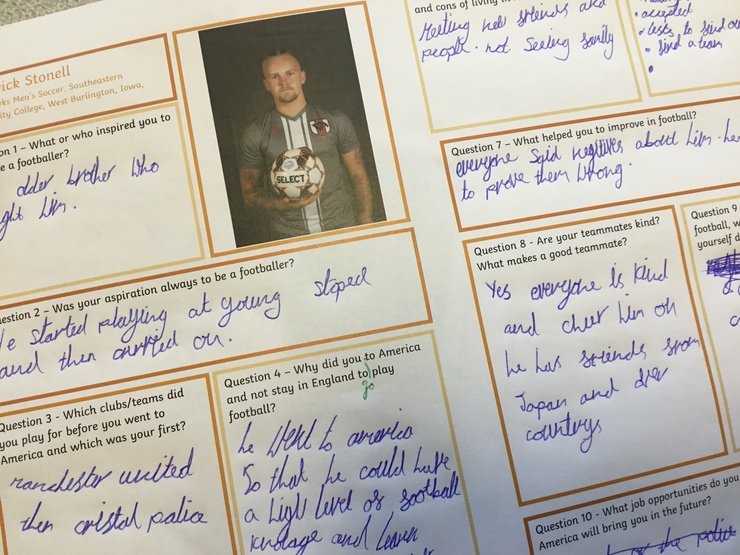 ick Stonell
ks Men's Soccer, Southeastern
ity College, West Burlington, Iowa,
on 1 - What or who inspired you to
e a footballer?
older brother who
ght him.
SELECT
estion 2 - Was your aspiration always to be a footballer?
e started playing at young stoped
and then carried on.
Question 3 - Which clubs/teams did
you play for before you went to
America and which was your first?
manchester united
then cristal palice
Question 4 - Why did you to America
go
and not stay in England to play
football?
he went to america
So that he could have
a high level of football
knolage and
and cons of living
Meeting new friends and
people. not seeing family
accepted
tests to find ou
find a team
Question 7 - What helped you to improve in football?
everyone said negitives about him. he
to prove them wrong.
Question 8 - Are your teammates kind?
What makes a good teammate?
Yes everyone is kind
and cheer him on
he has friends from
Japan and
countrys
Question 9
football, w
yourself d
Question 10 - What job opportunities do you
America will bring you in the future?